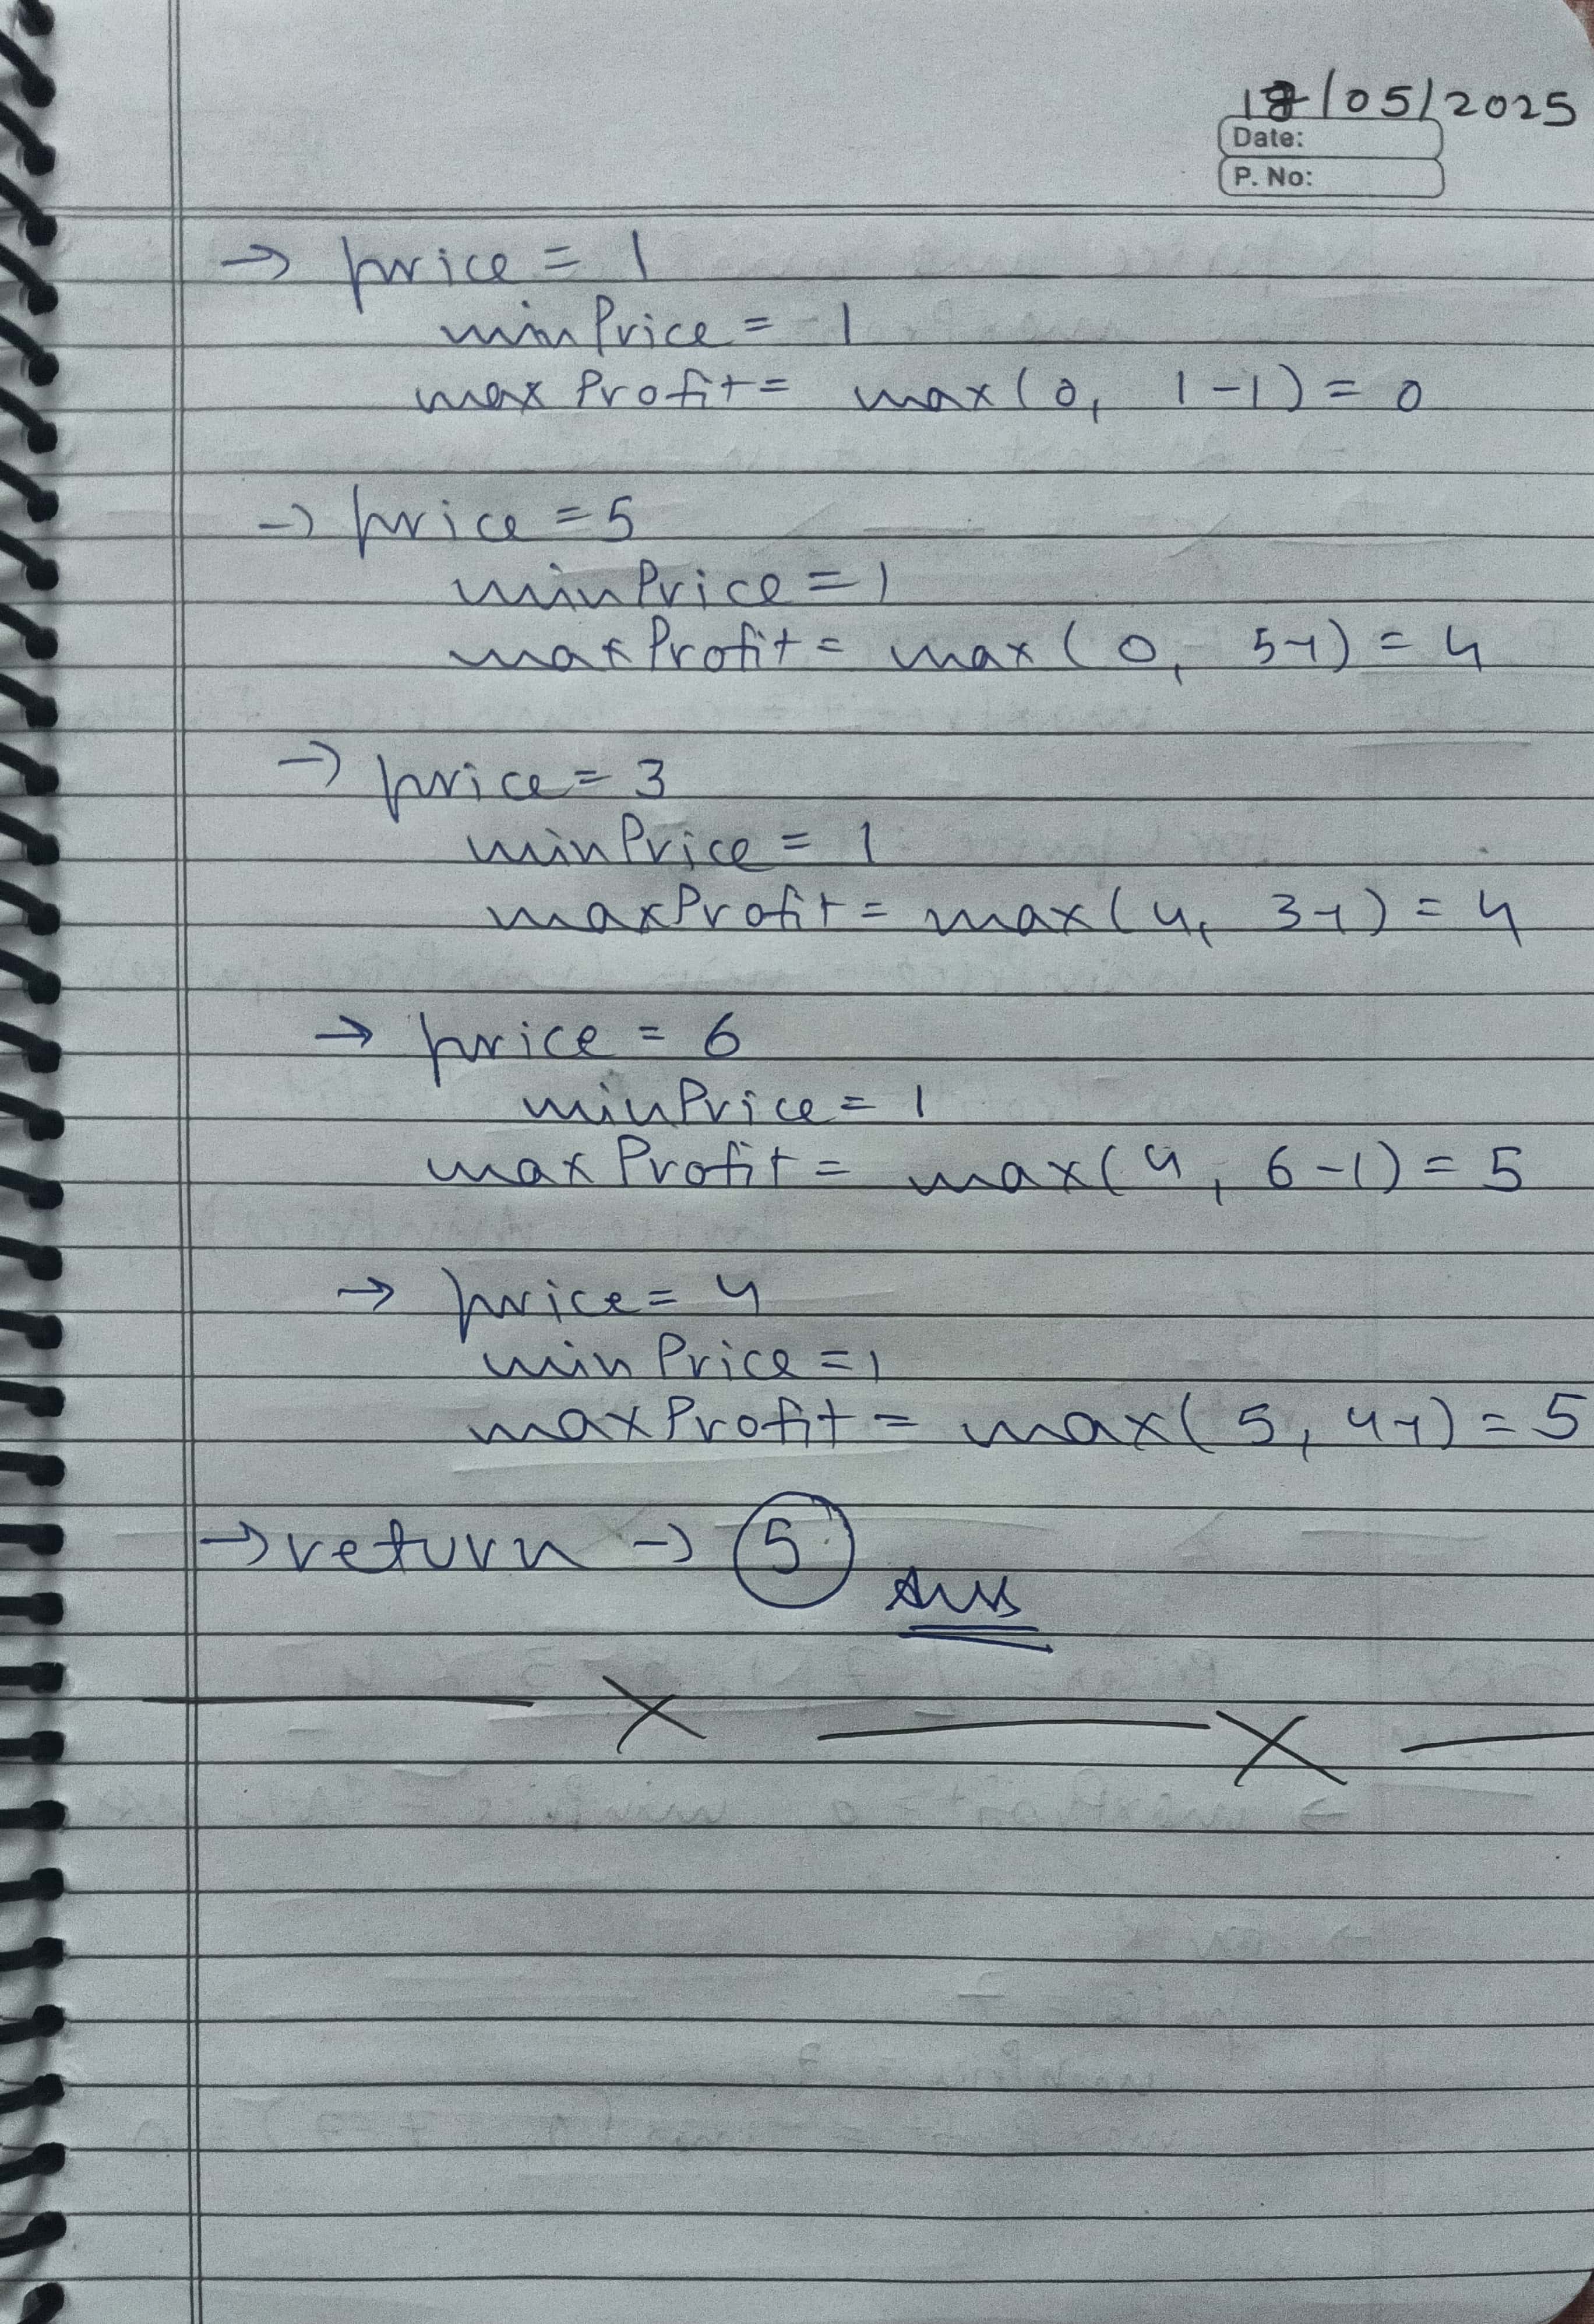 /05/2025
Date:
P. No:
→ price = 1
minPrice = 1
maxProfit = max(0, 1-1) = 0
→ price = 5
minPrice = 1
maxProfit = max(0, 5-1) = 4
→ price = 3
minPrice = 1
maxProfit = max(4, 3-1) = 4
→ price = 6
minPrice = 1
maxProfit = max(4, 6-1) = 5
→ price = 4
minPrice = 1
maxProfit = max(5, 4-1) = 5
→ return → 5
Ans